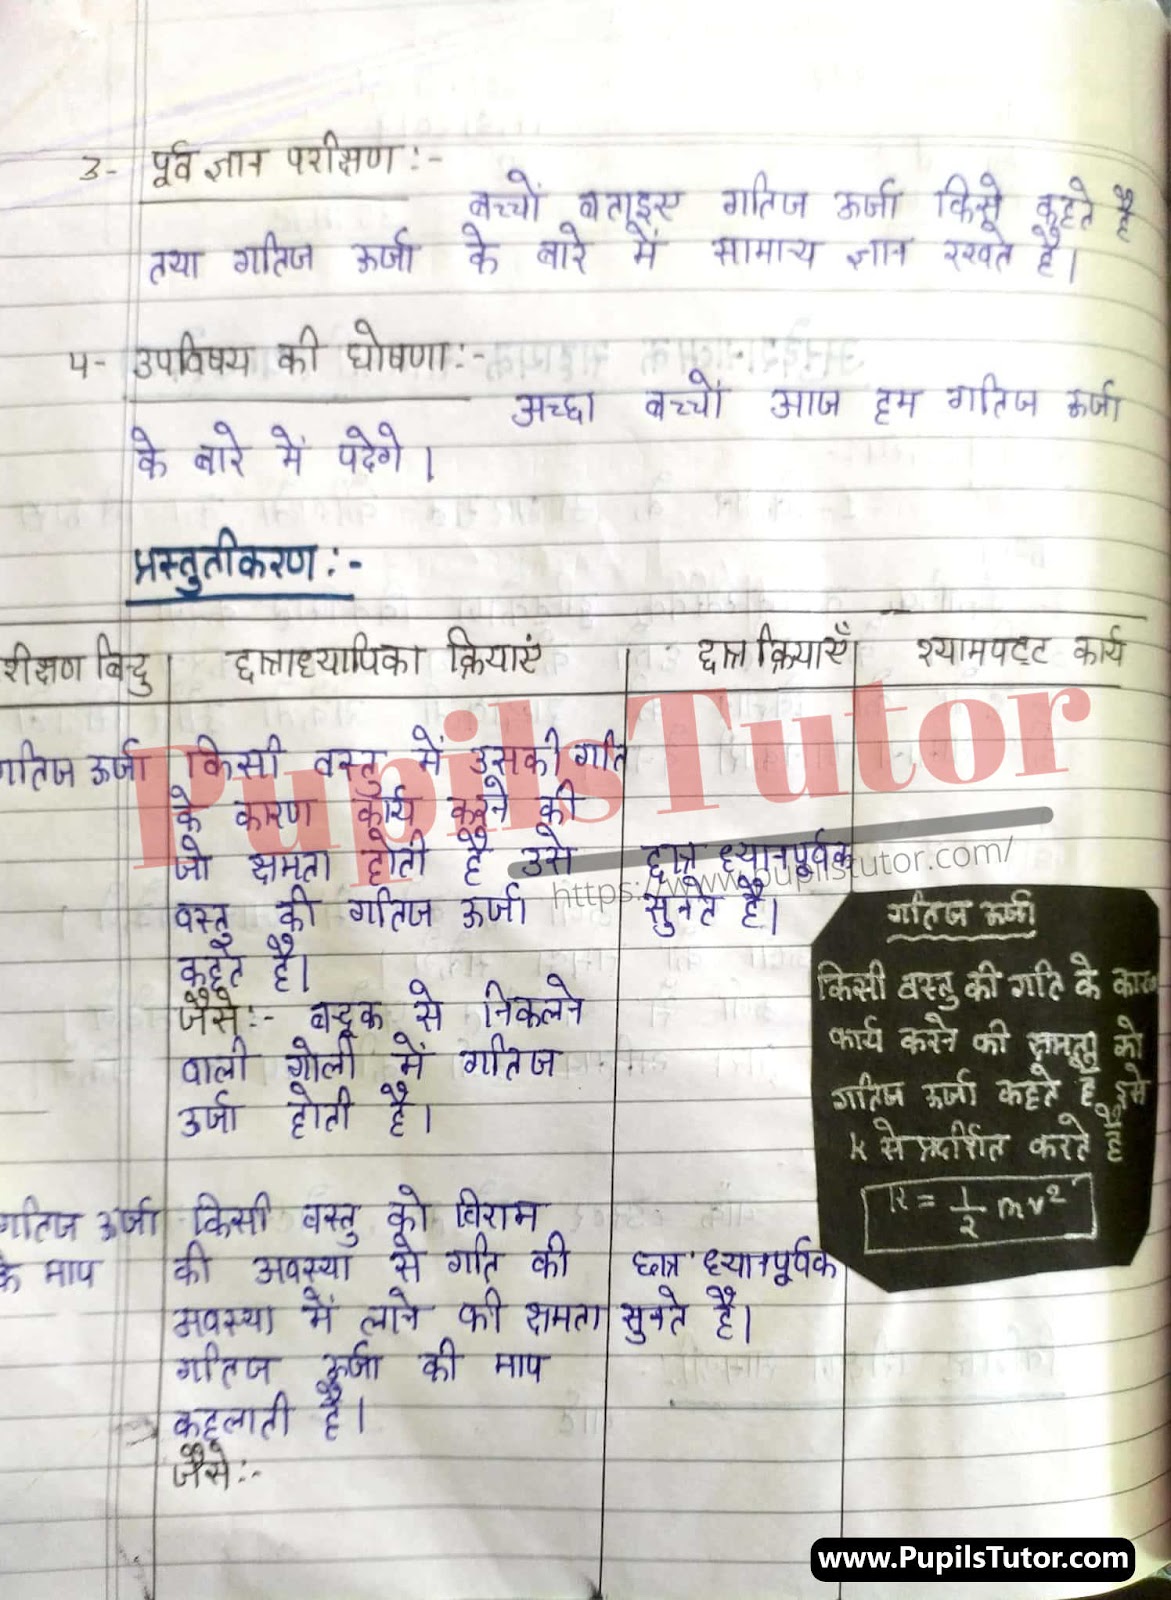 3- पूर्व ज्ञान परीक्षण :-
बच्चों बताइए गतिज ऊर्जा किसे कहते है
तथा गतिज ऊर्जा के बारे में सामान्य ज्ञान रखते है।
4- उपविषय की घोषणा:-
अच्छा बच्चों आज हम गतिज ऊर्जा
के बारे में पढेगे।
प्रस्तुतीकरण:-
शीक्षण बिन्दु छात्राध्यापिका क्रियाएं छात्र क्रियाएँ श्यामपट्ट कार्य
गतिज ऊर्जा
किसी वस्तु में उसकी गति
के कारण कार्य करने की
जो क्षमता होती है उसे
वस्तु की गतिज ऊर्जा
कहते है।
जैसे:- बन्दूक से निकलने
वाली गोली में गतिज
उर्जा होती है।
छात्र ध्यानपूर्वक
सुनते है।
गतिज ऊर्जा
किसी वस्तु की गति के कारण
कार्य करने की क्षमता को
गतिज ऊर्जा कहते है इसे
K से प्रदर्शित करते है
K = 1/2 mv²
गतिज ऊर्जा
के माप
किसी वस्तु को विराम
की अवस्था से गति की
अवस्था में लाने की क्षमता
गतिज ऊर्जा की माप
कहलाती है।
जैसे:-
छात्र ध्यानपूर्वक
सुनते है।
PupilsTutor
https://www.pupilstutor.com/
www.PupilsTutor.com